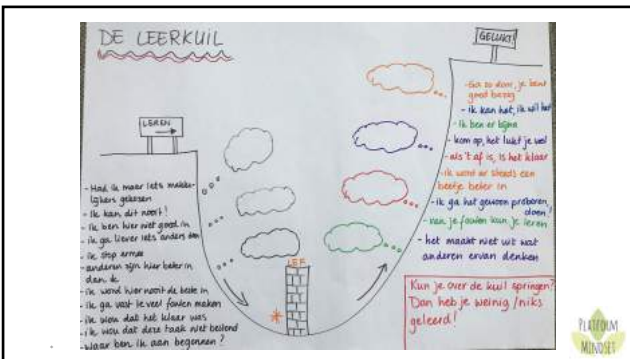 DE LEERKUIL
GELUKT!
LEREN
- Had ik maar iets makke-
lijkers gekozen
- ik kan dit nooit!
- ik ben hier niet goed in
- ik ga liever iets anders doen
- ik stop ermee
- anderen zijn hier beter in
dan ik
- ik word hier nooit de beste in
- ik ga vast te veel fouten maken
- ik wou dat het klaar was
- ik wou dat deze taak niet bestond
- waar ben ik aan begonnen?
LEF
- Ga zo door, je bent
goed bezig
- ik kan het, ik wil het
- ik ben er bijna
- kom op, het lukt je wel
- als 't af is, is het klaar
- ik word er steeds een
beetje beter in
- ik ga het gewoon proberen,
doen!
- van je fouten kun je leren
- het maakt niet uit wat
anderen ervan denken
Kun je over de kuil springen?
Dan heb je weinig/niks
geleerd!
PLATFORM
MINDSET